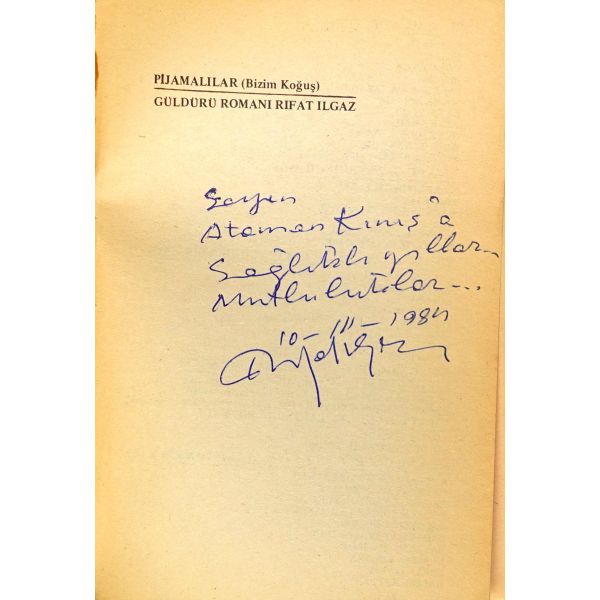 PİJAMALILAR (Bizim Koğuş)
GÜLDÜRÜ ROMANI RIFAT ILGAZ
Sayın
Ataman Kınış'a
Sağlıklı yıllar..
Mutluluklar...
10-III-1984
Rıfat Ilgaz